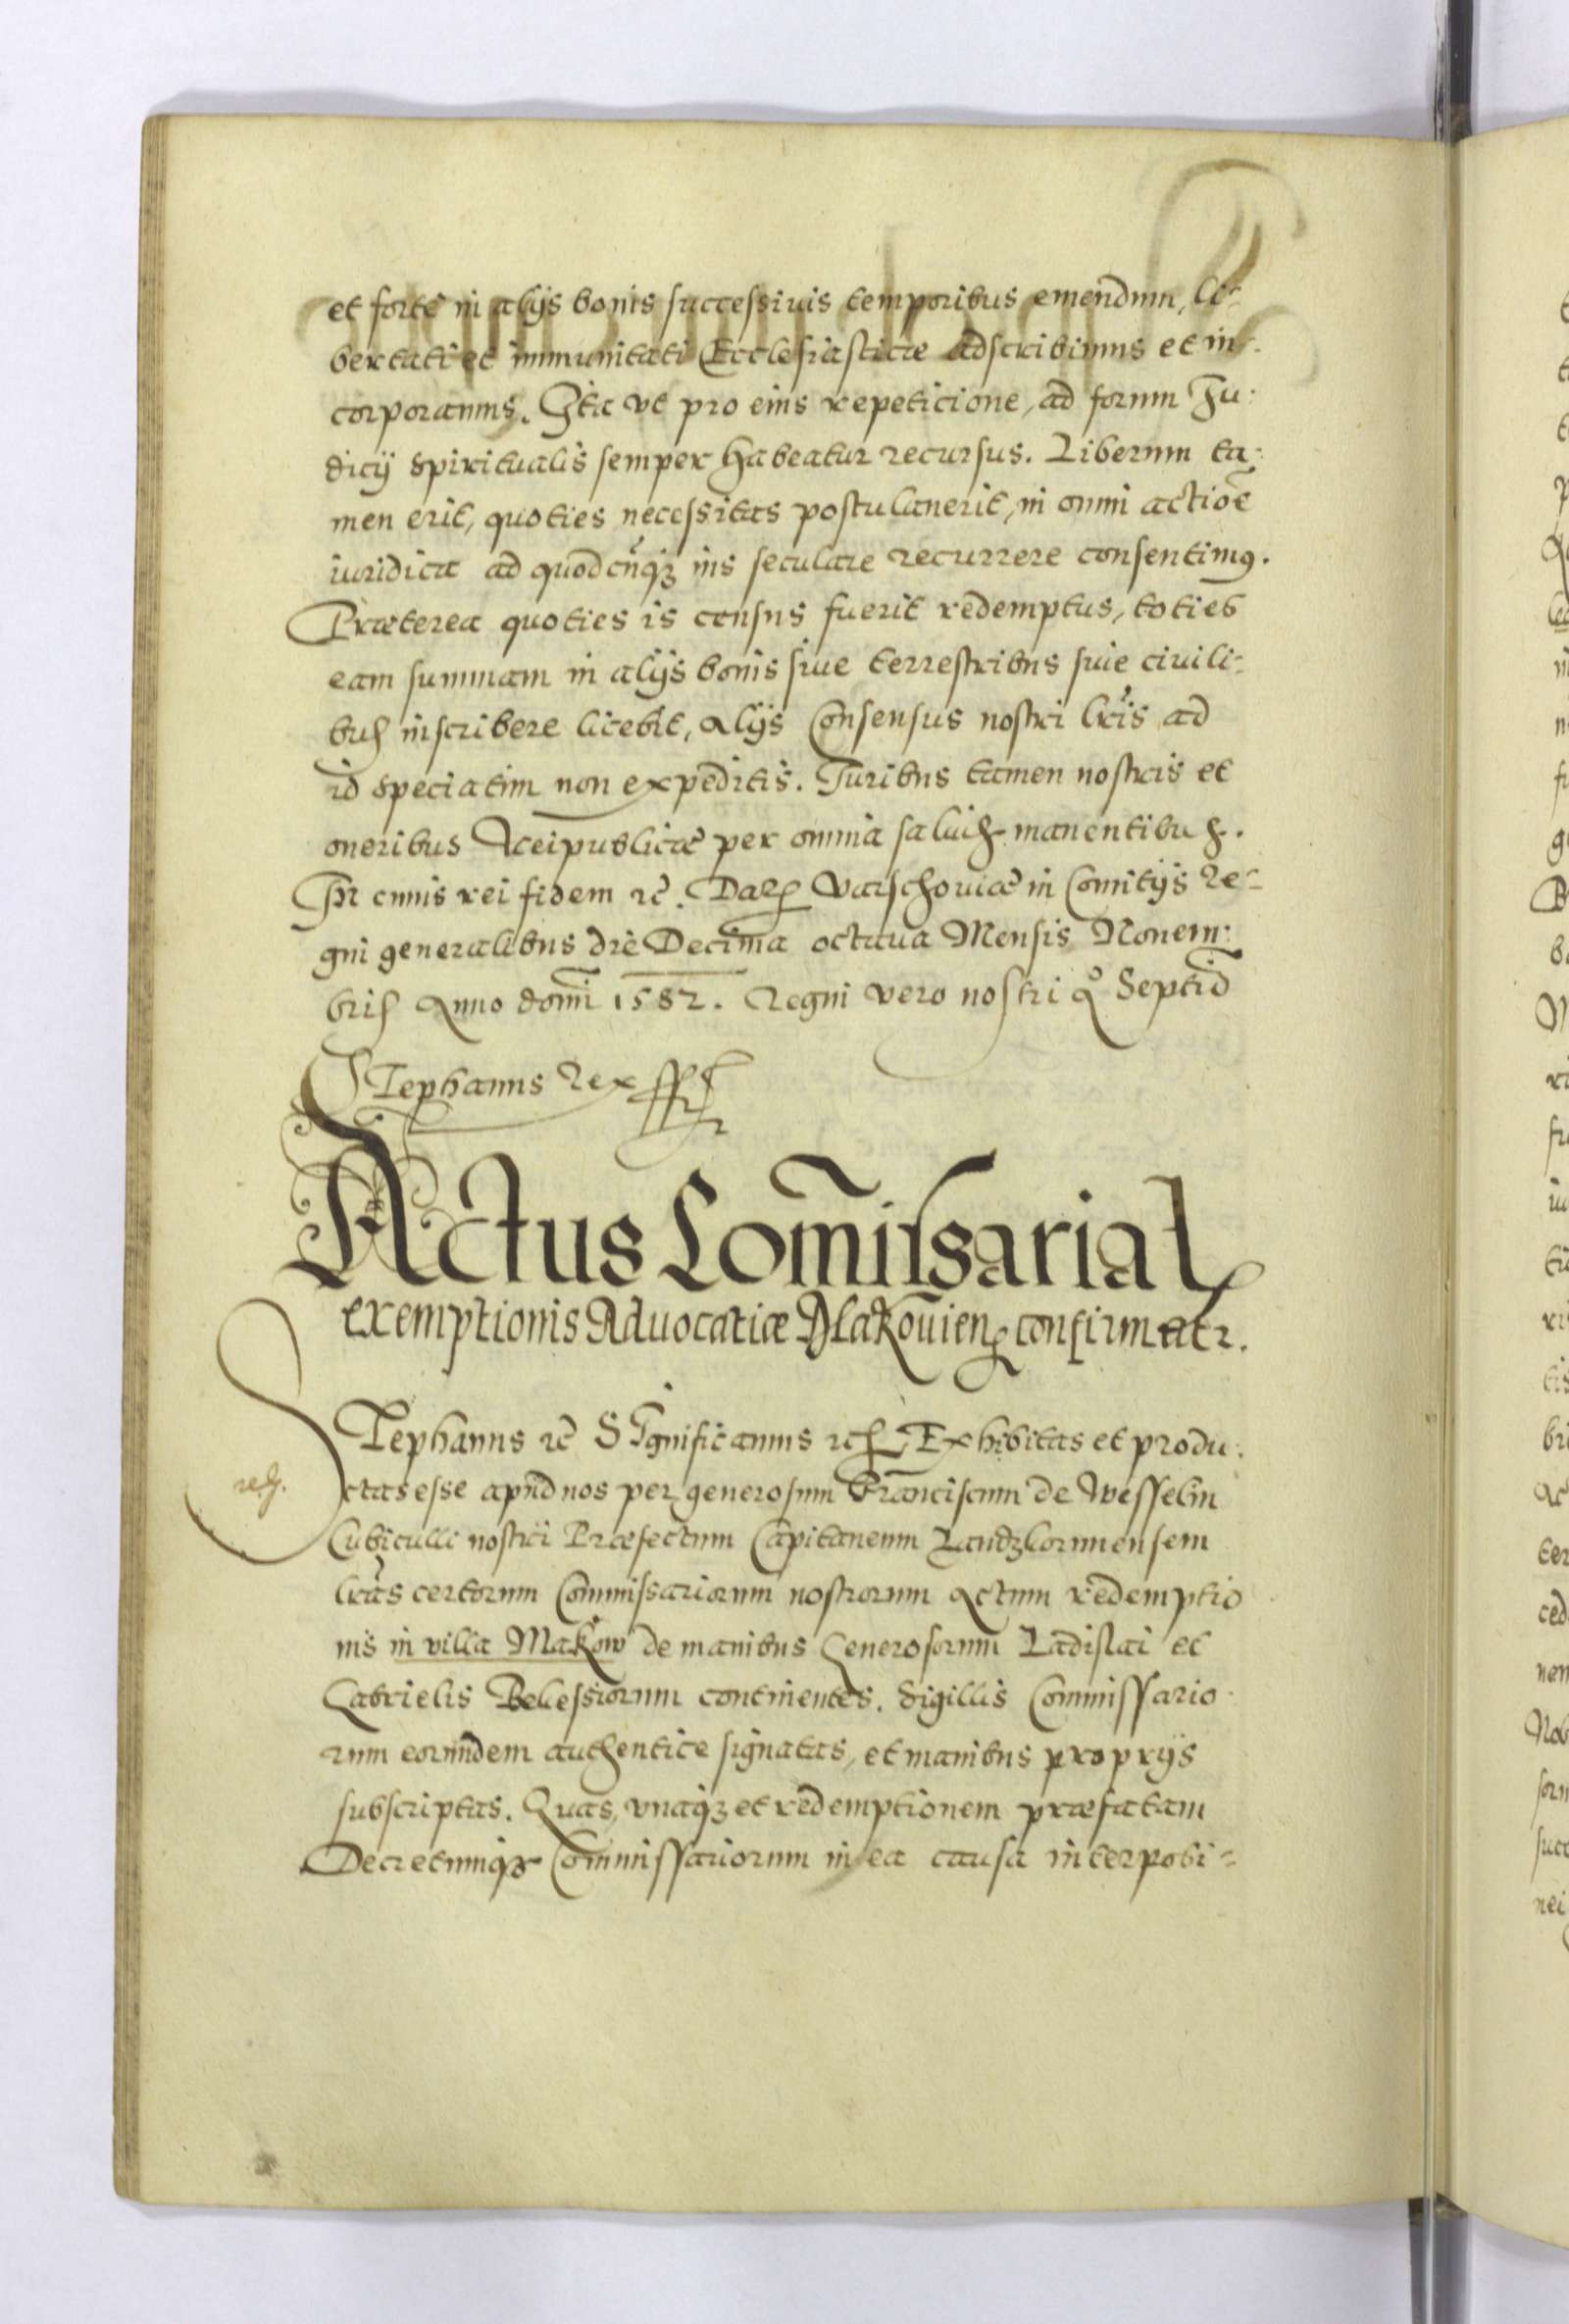 et forte in alijs bonis successiuis temporibus emendum, li-
bertati et immunitati Ecclesiasticæ adscribimus et in-
corporamus. Ita vt pro eius repeticione, ad forum Ju-
dicij spiritualis semper habeatur recursus. Liberum ta-
men erit, quoties necessitas postulauerit, in omni actiõe
iuridica ad quodcũq3 ius seculare recurrere consentimꝰ.
Præterea quoties is census fuerit redemptus, toties
eam summam in alijs bonis siue terrestribus siue ciuili-
bus inscribere licebit, alijs Consensus nostri lr̃is ad
id speciatim non expeditis. Juribus tamen nostris et
oneribus Reipublicæ per omnia saluis manentibus.
In cuius rei fidem ⁊c̃. Datꝭ Varschouiæ in Comitijs Re-
gni generalibus die Decima octaua Mensis Nouem-
bris Anno domĩ 1582. Regni vero nostri aº Septiõ
Stephanus Rex sst
Actus Com̃issarial
exemptionis Aduocatiæ Makouienꝭ confirmatr.
Stephanus ⁊c̃ Significamus ⁊cꝭ Exhibitas et produ-
reg.
ctas esse apud nos per generosum Franciscum de Wesselin
Cubiculli nostri Præfectum Capitaneum Landzkorunensem
lr̃as certorum Commissariorum nostrorum Actum redemptio
nis in villa Makow de manibus Generosorum Ladislai et
Gabrielis Belessiorum continentes. Sigillis Commissario-
rum eorundem authentice signatas, et manibus proprijs
subscriptas. Quas, vnaq3 et redemptionem præfatam
Decretumq3 Commissariorum in ea causa interposi-